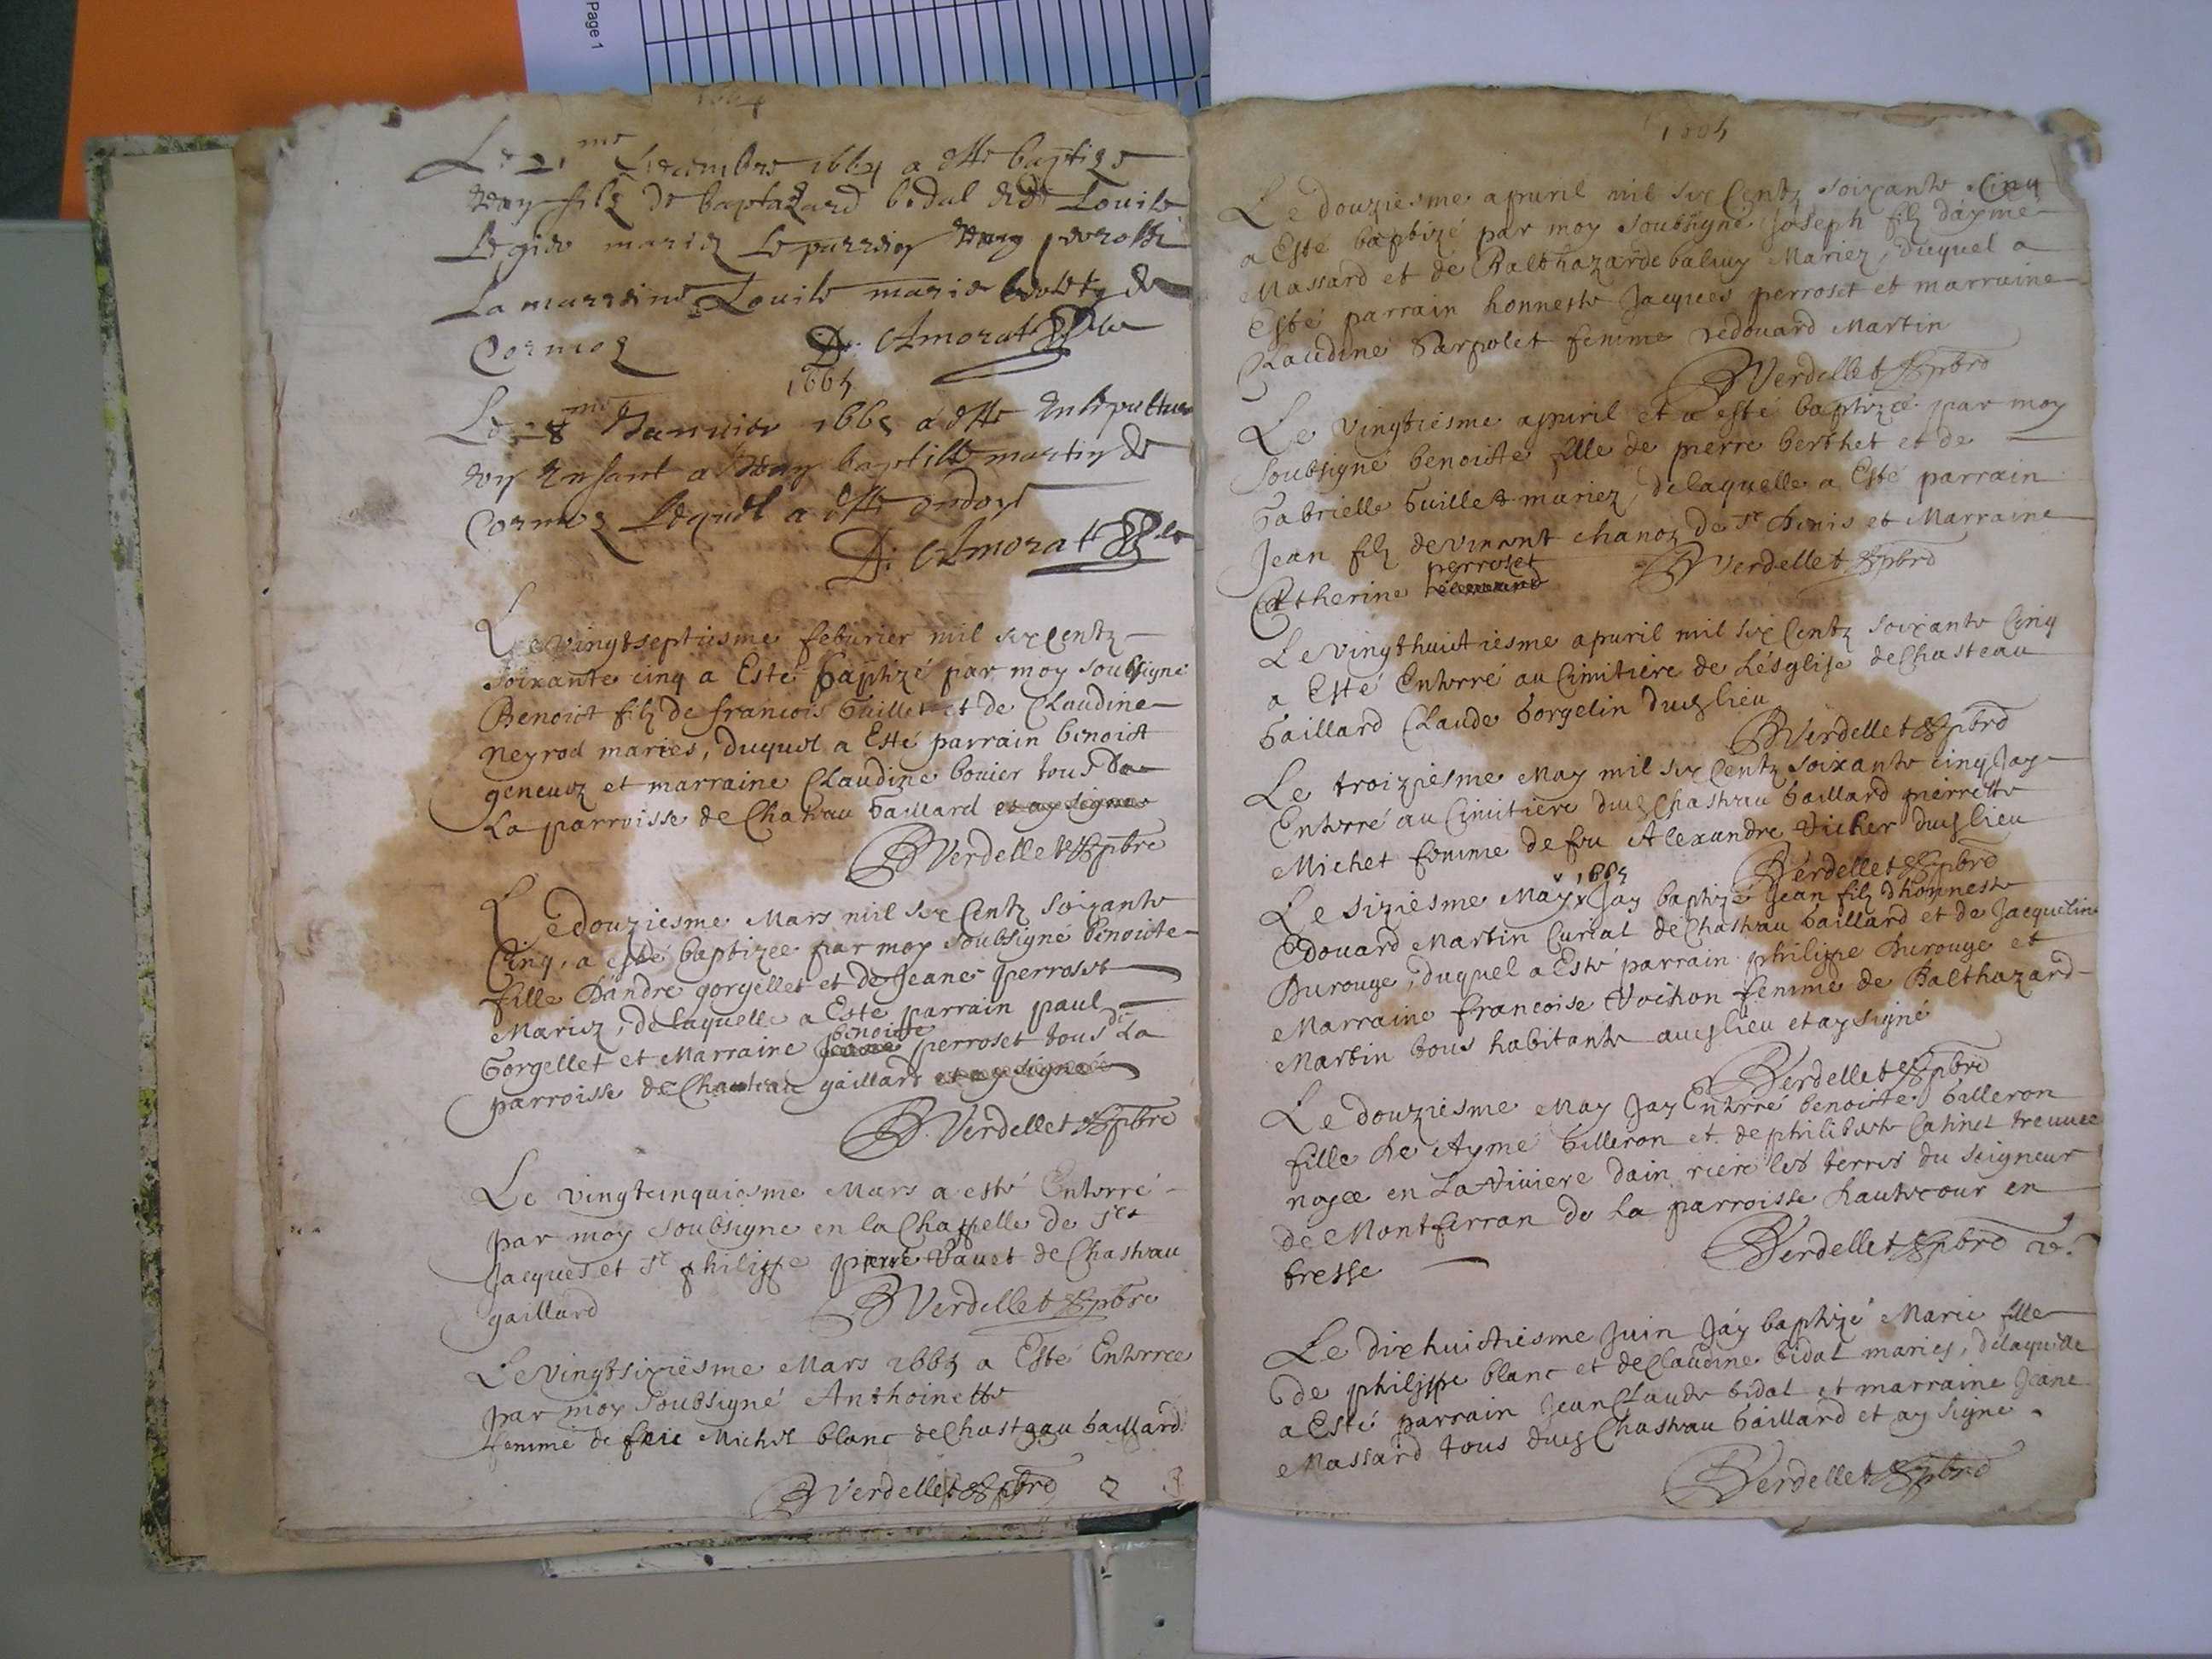 Page 1
1664
Le 21me Decembre 1664 a este baptize
Jean filz de baptazard bidal et de Louise
marie Le parrein perosset
La marreine Louise marie de
Cormoz D. Amorat
1665
Le 18me Januier 1665 a este ensepulture
vn Enfant a Jean baptiste martin de
Cormoz Lequel a este ondoyé
D: Amorat
Le vingtseptiesme feburier mil six Centz
soixante cinq a Esté baptizé par moy soubsigné
Benoict filz de francois Guillet et de Claudine
neyrod maries, duquel a Esté parrain benoict
geneuoz et marraine Claudine bouier tous de
La parroisse de Chateau Gaillard et ay signe
B Verdellet pbre
Le douziesme Mars mil six Centz soixante
Cinq, a esté baptizee par moy soubsigné benoicte
fille d'andre gorgellet et de Jeane perrosset
Mariez, de laquelle a Esté parrain paul
benoiste de
Gorgellet et Marraine Jeane perroset tous La
parroisse de Chasteau gaillard et ay signé
B. Verdellet pbre
Le vingtcinquiesme Mars a esté Enterré
par moy soubsigne en la Chappelle de Sct
Jacques et St philippe pierre Vauet de Chasteau
gaillard B Verdellet pbre
Le vingtsixiesme Mars 1665 a Esté Enterree
par moy soubsigné Anthoinette
femme de feu Michel blanc de Chasteau Gaillard
B Verdellet pbre 2
1665
Le douziesme apuril mil six Centz soixante Cinq
a Esté baptizé par moy soubsigné Joseph filz d'ayme
Massard et de Balthazarde baluy Mariez, duquel a
Esté parrain honneste Jacques perroset et marraine
Claudine Carpolet femme dedouard Martin
B Verdellet pbre
Le vingtiesme apuril et a esté baptizeé par moy
soubsigné benoicte fille de pierre berthet et de
Gabrielle Guillet mariez, de laquelle a Esté parrain
Jean filz de vincent chanoz de St Denis et Marraine
perroset
Catherine B Verdellet pbre
Le vingthuictiesme apuril mil six Centz soixante Cinq
a Esté Enterré au Cimitiere de L'ésglise de Chasteau
Gaillard Claude Gorgelin dud lieu
B Verdellet pbre
Le troiziesme May mil six Centz soixante cinq Jay
Enterré au Cimitiere dud Chasteau Gaillard pierrette
Michet femme de feu Alexandre Vicher dud lieu
B Verdellet pbre
1665
Le siziesme May Jay baptizé Jean filz d'honneste
Edouard Martin Curial de Chasteau Gaillard et de Jacqueline
Durouge, duquel a Esté parrain philippe Durouge et
Marraine francoise Vochon femme de Balthazard
Martin tous habitants aud lieu et ay signé
B Verdellet pbre
Le douziesme May Jay Enterré benoiste Gilleron
fille de Ayme Gilleron et de philiberte Catinet treuuee
noyee en La Riuiere dain riere les terres du seigneur
de Montferran de La parroisse hautecour en
bresse B Verdellet pbre v.
Le dixhuictiesme Juin Jáy baptizé Marie fille
de philippe blanc et de Claudine bidal maries, de laquelle
a Esté parrain Jean Claude bidal et marraine Jeane
Massard tous dud Chasteau Gaillard et ay signé.
B Verdellet pbre